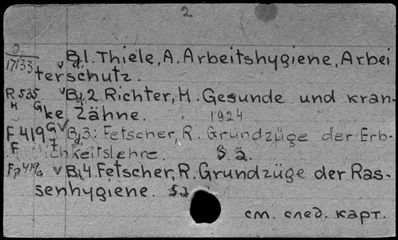 2
0 Bd.1. Thiele, A. Arbeitshygiene, Arbei
17133 terschutz.
R 535 v Bd.2. Richter, H. Gesunde und kran-
H G ke Zähne. 1924
F 419 G V Bd.3: Fetscher, R. Grundzüge der Erb-
F 7 lichkeitslehre. S. 2.
Fp 419G v Bd.4. Fetscher, R. Grundzüge der Ras-
senhygiene. S. 2
см. след. карт.